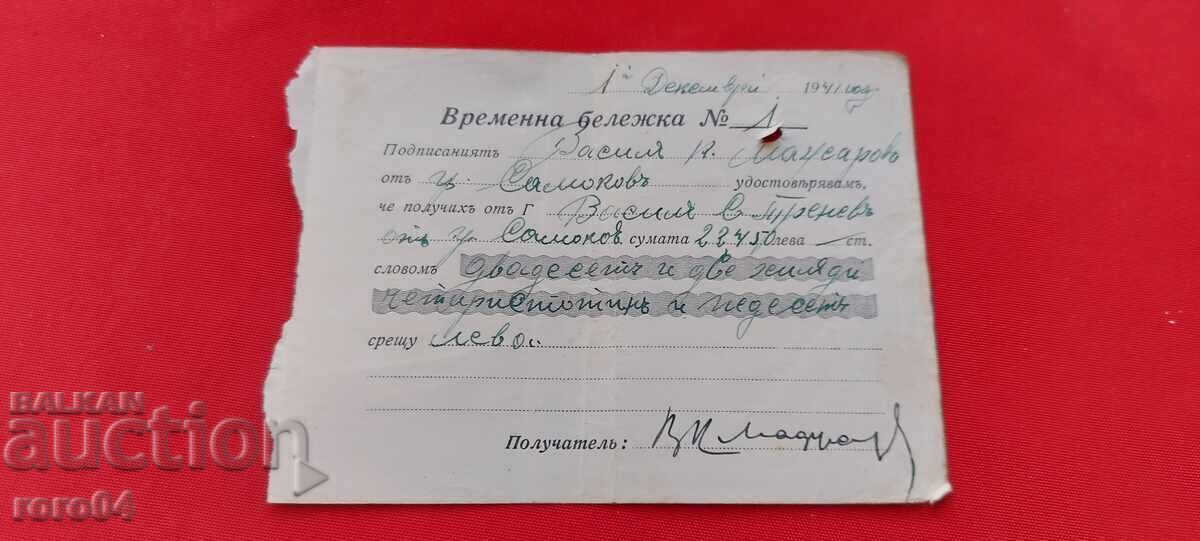 1й Декемврий 1941 год
Временна бележка № 1
Подписаниятъ Василъ К.
отъ гр. Самоковъ удостовѣрявамъ,
че получихъ отъ Г Василъ С. Треневъ
отъ гр. Самоков сумата 22450 лева — ст.
словомъ двадесетъ и две хиляди
четиристотинъ и педесетъ
срещу лева.
Получатель:
BALKAN
auction
roro04